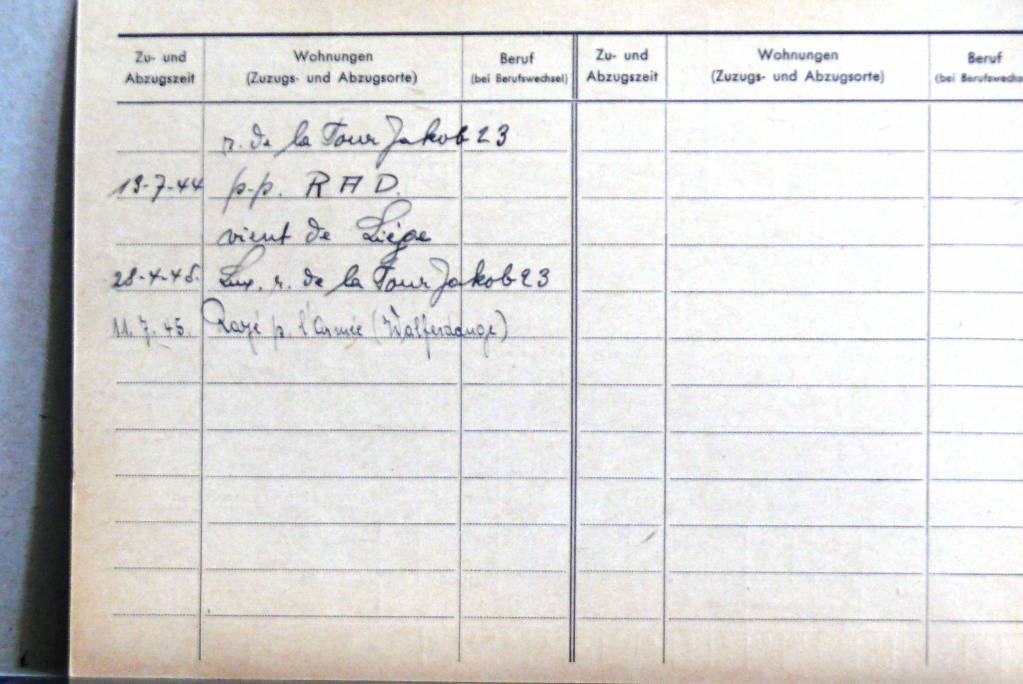 Zu- und Abzugszeit
Wohnungen (Zuzugs- und Abzugsorte)
Beruf (bei Berufswechsel)
Zu- und Abzugszeit
Wohnungen (Zuzugs- und Abzugsorte)
Beruf (bei Berufswechse
r. de la Tour Jakob 23
19-7-44 p.p. R A D.
vient de Liége
28-4-45. Lux. r. de la Tour Jakob 23
11.7.45. Rayé p. l'Armée (Walferdange)